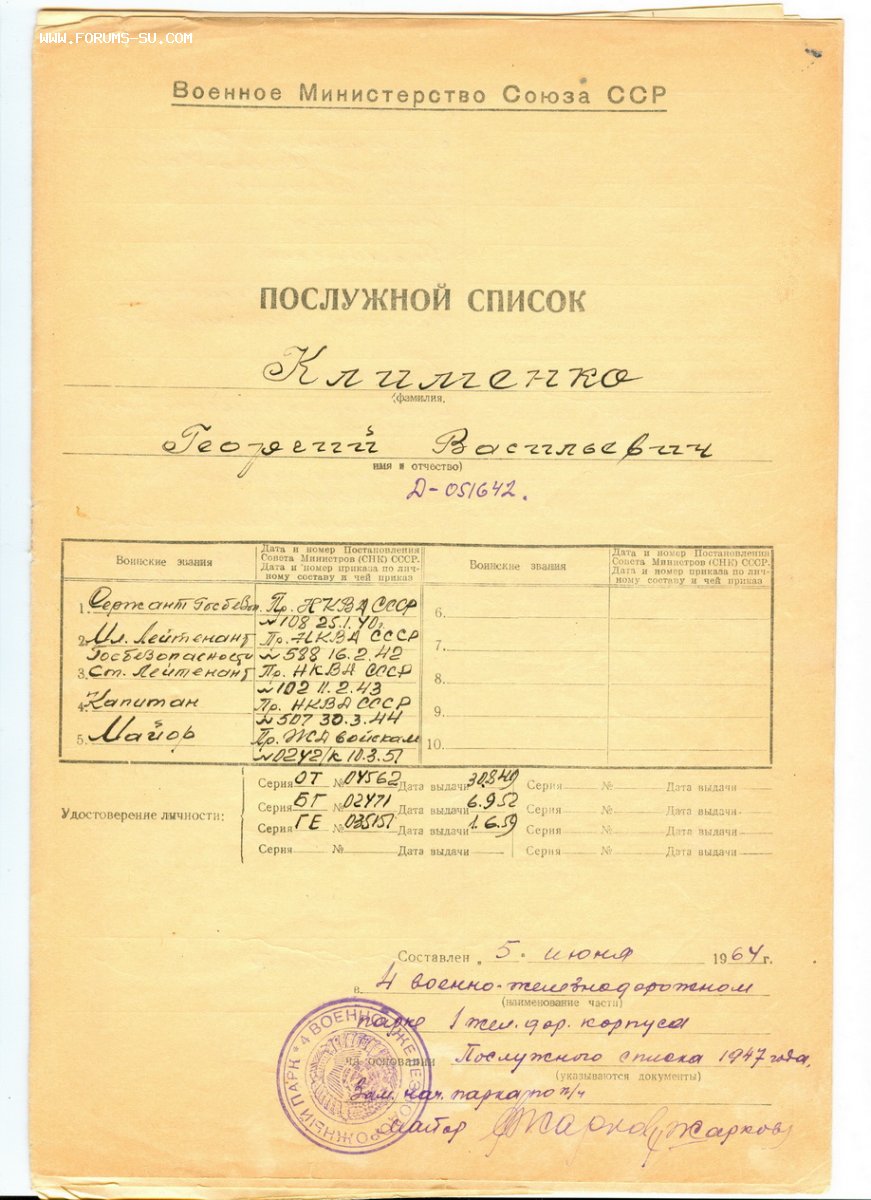 www.forums-su.com
Военное Министерство Союза ССР
ПОСЛУЖНОЙ СПИСОК
Клименко
(фамилия,
Георгий Васильевич
имя и отчество)
Д-051642.
Воинские звания
Дата и номер Постановления Совета Министров (СНК) СССР. Дата и номер приказа по личному составу и чей приказ
Воинские звания
Дата и номер Постановления Совета Министров (СНК) СССР. Дата и номер приказа по личному составу и чей приказ
1. Сержант Госбезоп. Пр. НКВД СССР
№108 25.1.40г.
2. Мл. Лейтенант Пр. НКВД СССР
Госбезопасности №588 16.2.42
3. Ст. Лейтенант Пр. НКВД СССР
№102 11.2.43
4. Капитан Пр. НКВД СССР
№507 30.3.44
5. Майор Пр. ЖД войскам
№0242/к 10.3.51
6.
7.
8.
9.
10.
Удостоверение личности:
Серия ОТ № 04562 Дата выдачи 30.8.49 Серия № Дата выдачи
Серия БГ № 02471 Дата выдачи 6.9.52 Серия № Дата выдачи
Серия ГЕ № 035151 Дата выдачи 1.6.59 Серия № Дата выдачи
Серия № Дата выдачи Серия № Дата выдачи
Составлен „ 5. июня 1964 г.
в 4 военно-железнодорожном
(наименование части)
парке 1 жел. дор. корпуса
на основании Послужного списка 1947 года,
(указываются документы)
Зам. нач. парка по п/ч
майор Жарков
4 ВОЕННО-ЖЕЛЕЗНОДОРОЖНЫЙ ПАРК